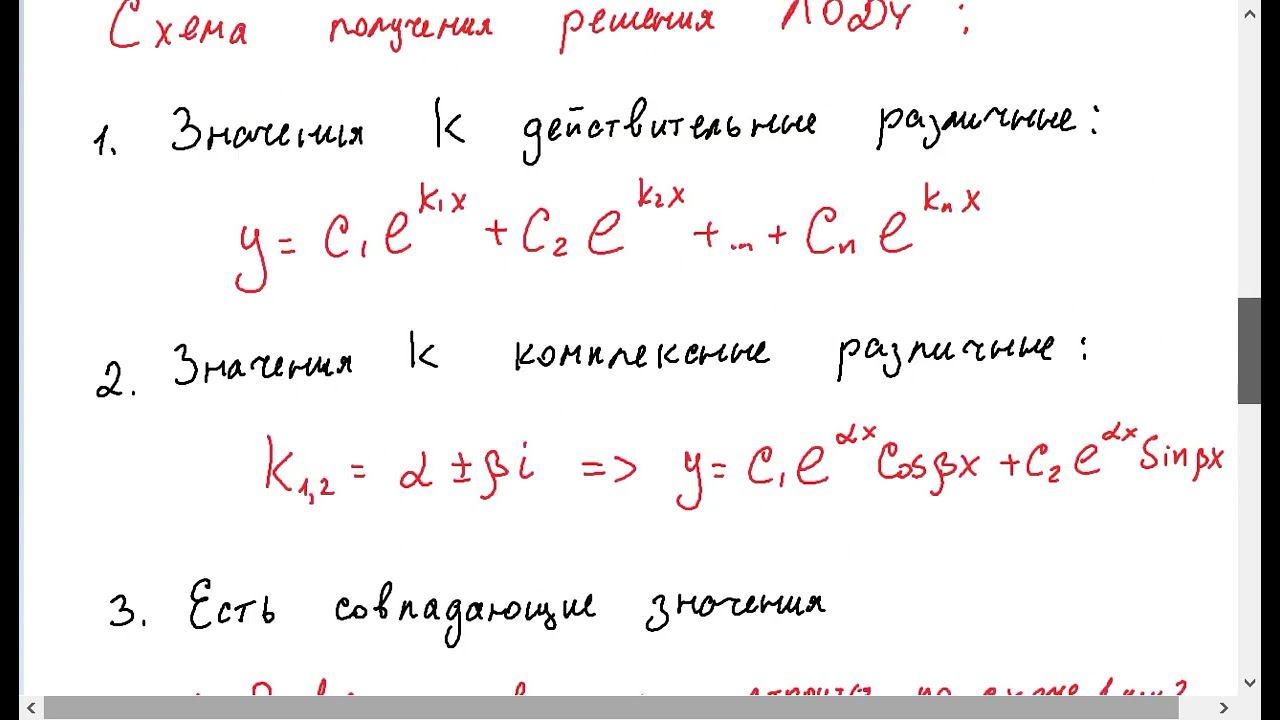 Схема получения решения ЛОДУ :
1. Значения k действительные различные:
y = C₁e^{k₁x} + C₂e^{k₂x} + ... + Cₙe^{kₙx}
2. Значения k комплексные различные:
k₁,₂ = α ± βi => y = C₁e^{αx}Cosβx + C₂e^{αx}Sinβx
3. Есть совпадающие значения